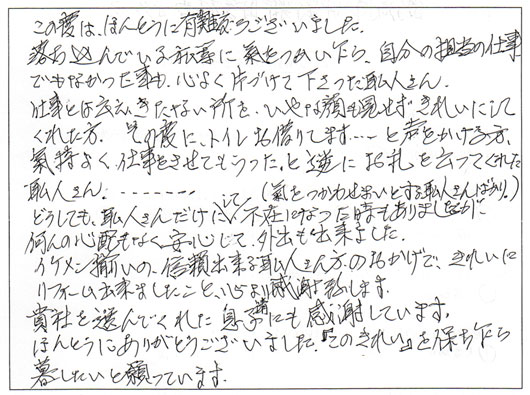 この度は、ほんとうに有難うございました。
落ち込んでいる私零に氣をつかい乍ら、自分の担当の仕事
でもなかった事も、心よく片づけて下さった職人さん。
仕事とは云え、きたない所を、いやな顔も見せずきれいにして
くれた方、その度に、トイレお借りします…と声をかける方、
気持よく仕事をさせてもらった、と逆にお礼を云ってくれた
職人さん、-------(氣をつかわせまいとする職人さんばかり。)
どうしても、職人さんだけにして不在になった時もありましたが、
何んの心配もなく安心して、外出も出来ました。
イケメン揃いの、信頼出来る職人さん方のおかげで、きれいに
リフォーム出来ましたこと、心より感謝致します。
貴社を選んでくれた息子にも感謝しています。
ほんとうにありがとうございました。『このきれい』を保ち乍ら
暮したいと願っています。